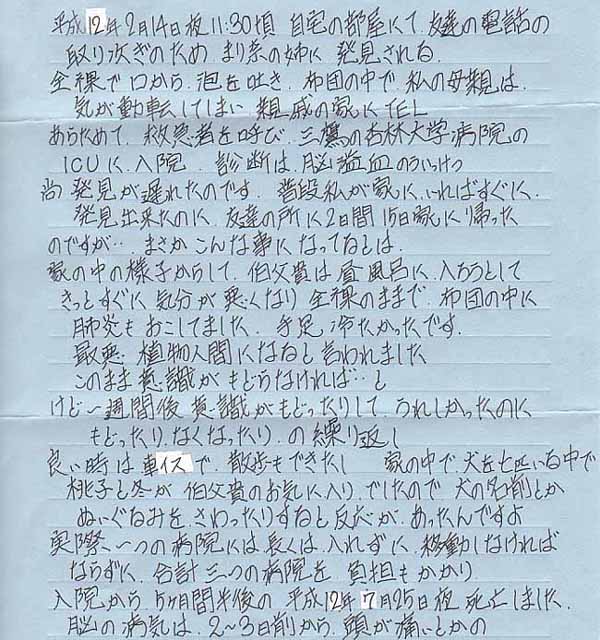 平成12年2月14日夜11:30頃 自宅の部屋にて.友達の電話の
取り次ぎのため.まり奈の姉に 発見される.
全裸で口から.泡を吐き.布団の中で.私の母親は.
気が動転してしまい 親戚の家にTEL
あらためて.救急者を呼び.三鷹の杏林大学病院の
ICUに.入院. 診断は.脳溢血のういっけつ
尚 発見が遅れたのです. 普段私が家に.いればすぐに.
発見出来たのに.友達の所に2日間 15日家に帰った
のですが… まさか こんな事になってるとは.
家の中の様子からして.伯父貴は 昼風呂に.入ろうとして
きっとすぐに.気分が悪くなり 全裸のままで.布団の中に
肺炎もおこしてました. 手足.冷たかったです.
最悪.植物人間になると言われました
このまま意識がもどらなければ…と
けど一週間後 意識がもどったりして うれしかったのに
もどったり.なくなったり.の繰り返し
良い時は車イスで.散歩もできたし 家の中で.犬を七匹いる中で
桃子と冬が 伯父貴のお気に入り.でしたので 犬の名前とか
ぬいぐるみを.さわったりすると反応が.あったんですよ
実際.一つの病院には.長くは.入れずに.移動しなければ
ならずに.合計三つの病院を 負担もかかり.
入院から.5ヶ月間半後の 平成12年7月25日夜 死亡しました.
脳の病気は.2〜3日前から.頭が痛いとかの